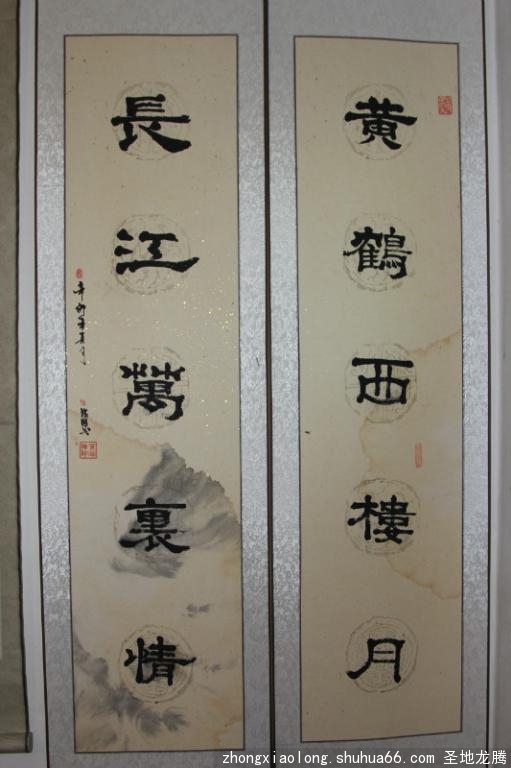 黄鶴西樓月
長江萬裏情
辛卯年夏月
zhongxiaolong.shuhua66.com 圣地龙腾